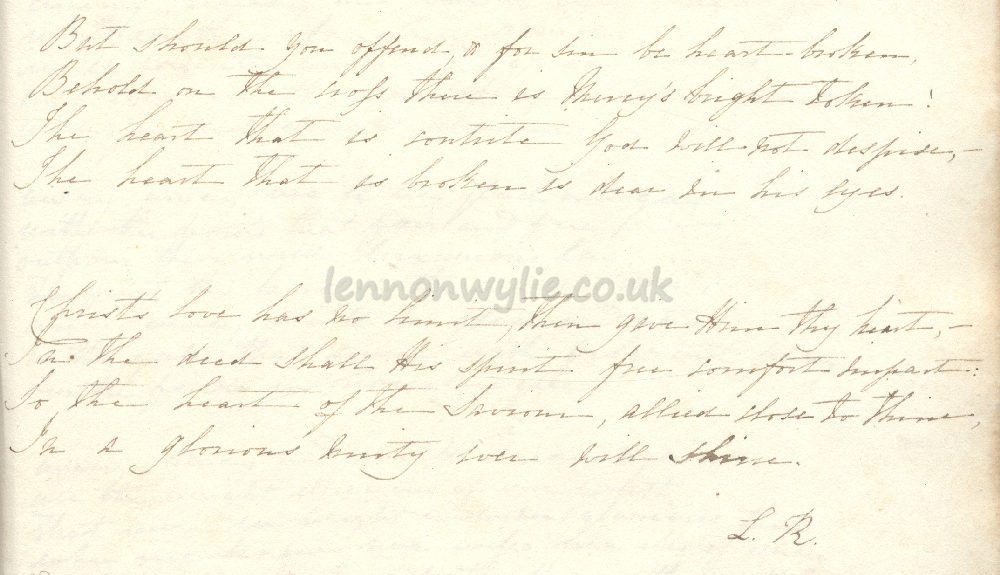 But should you offend, & for sin be heart-broken,
Behold on the cross there is Mercy's bright token!
The heart that is contrite God will not despise,-
The heart that is broken is dear in his eyes.
lennonwylie.co.uk
Christ's love has no limit, then give Him thy heart,-
In the deed shall His spirit free comfort impart:
So, the heart of the Saviour, allied close to thine,
In a glorious unity ever will shine.
L. R.